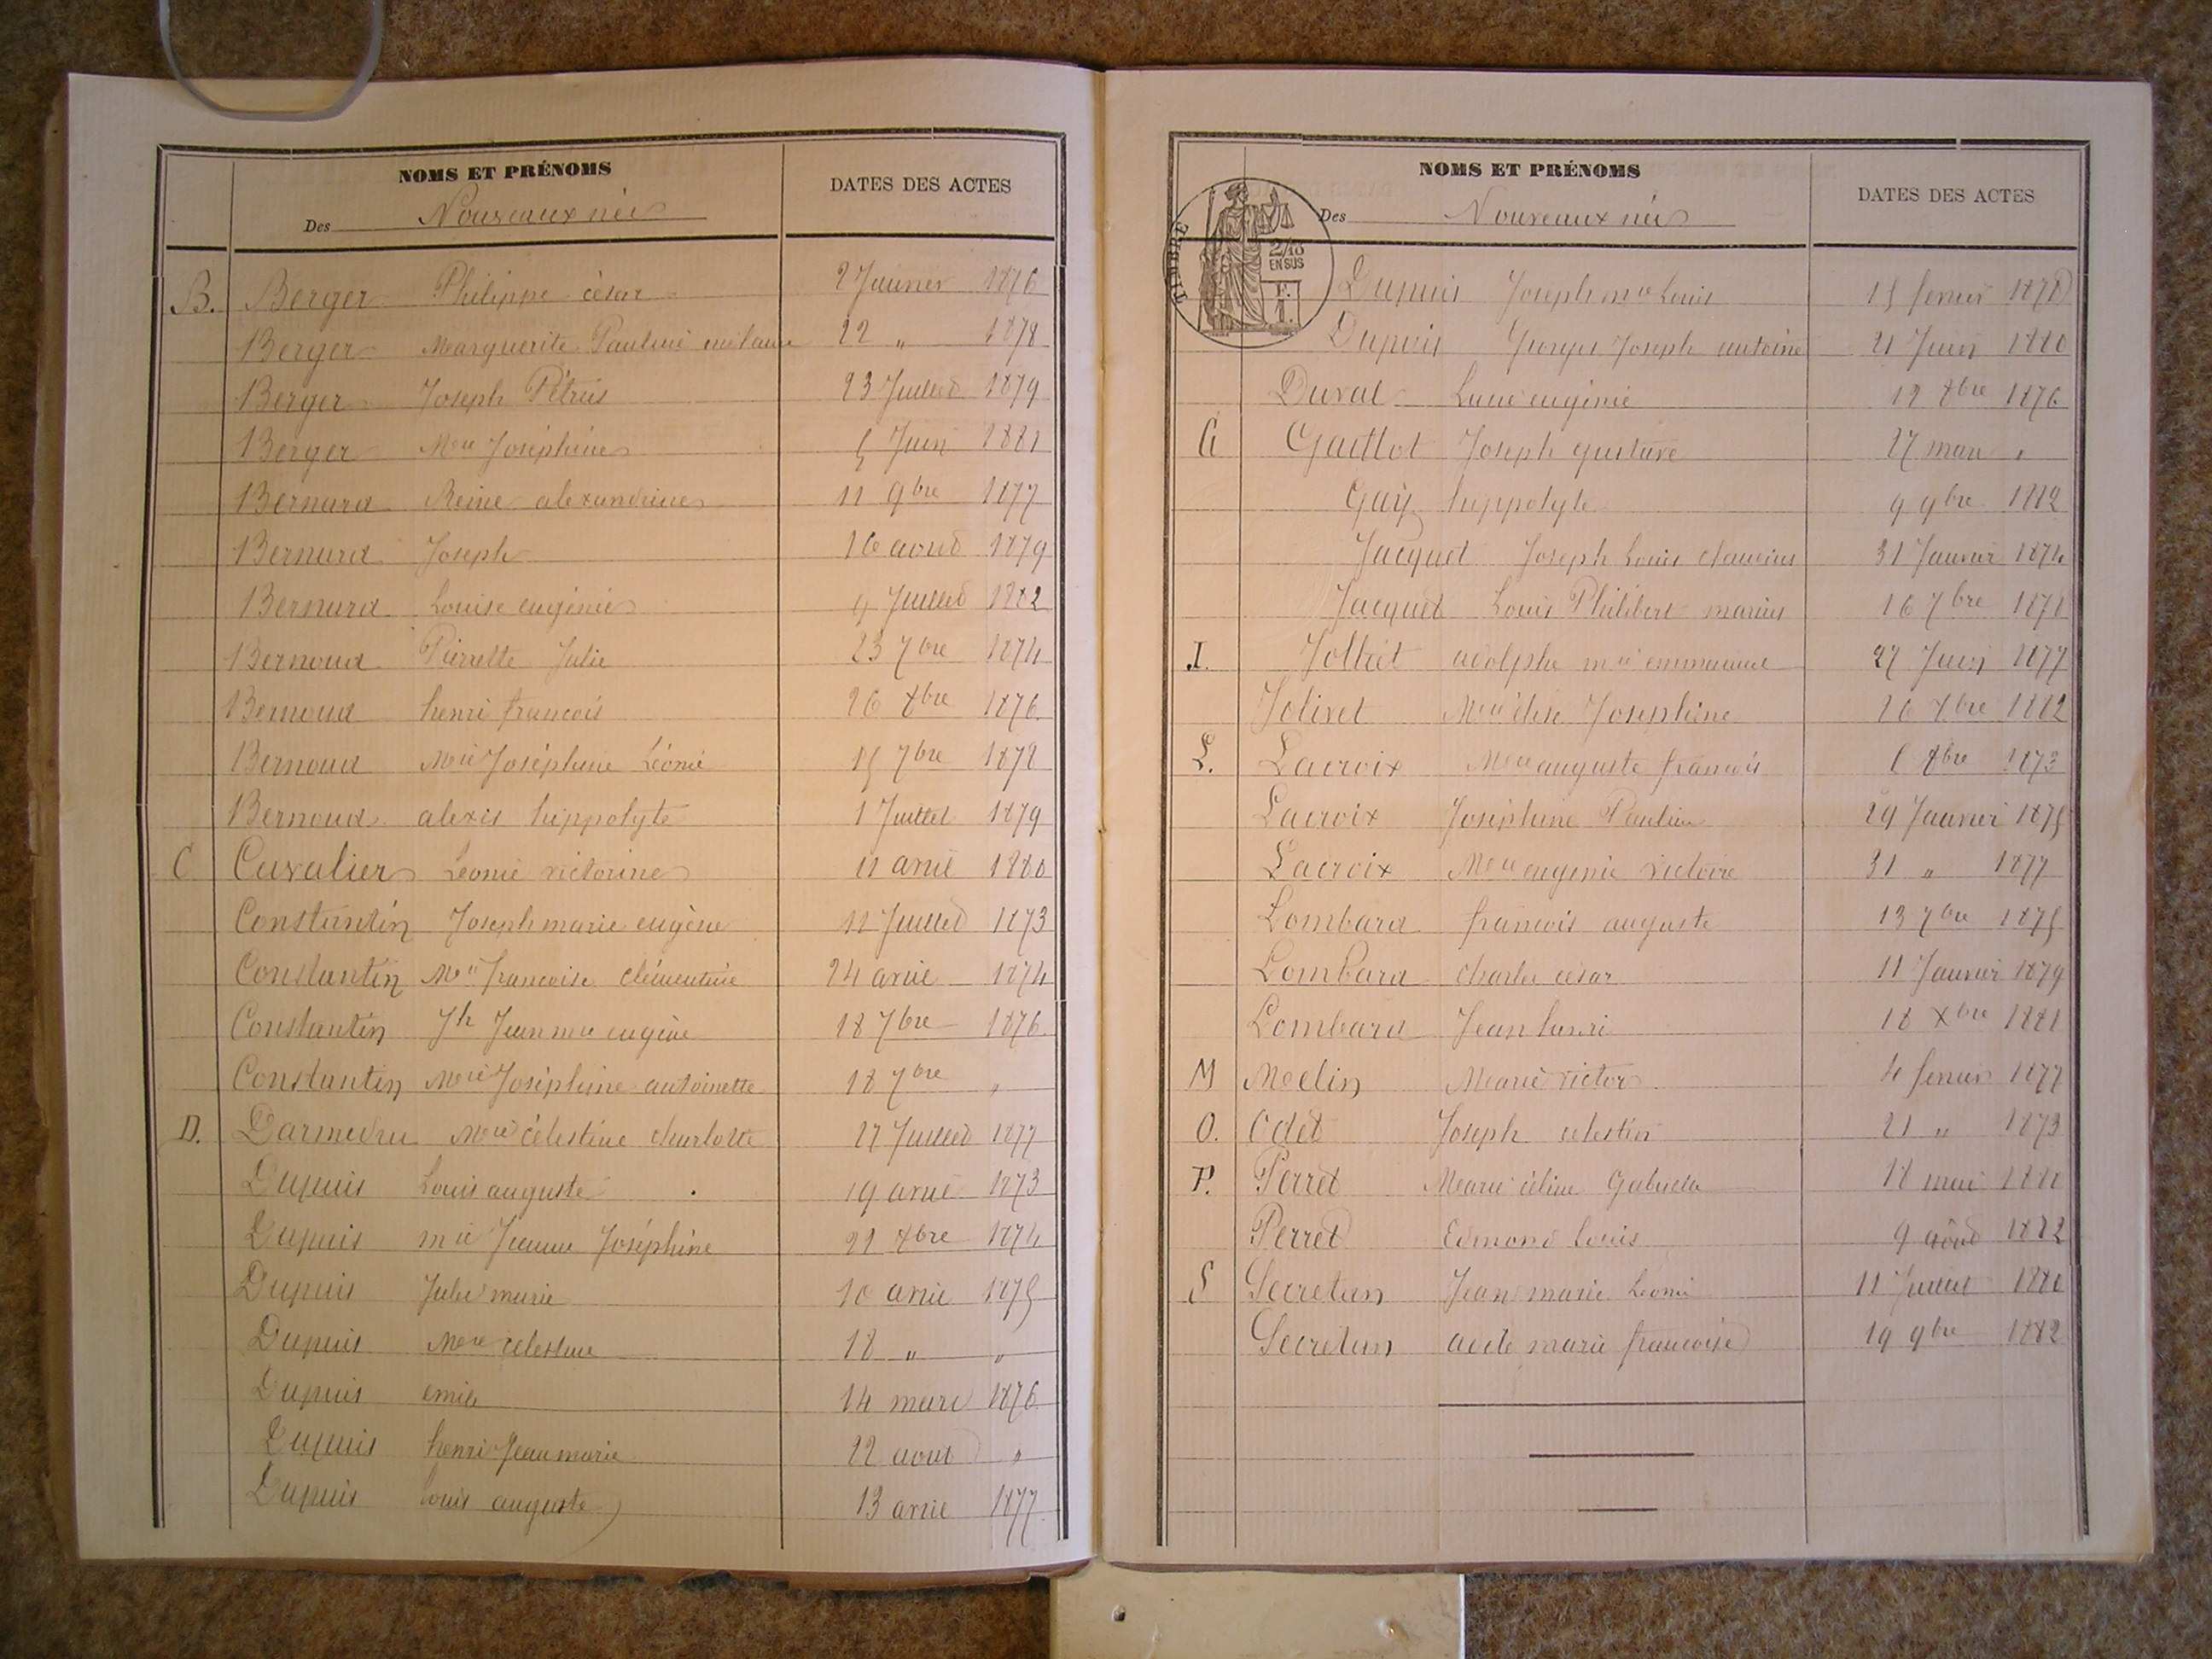 NOMS ET PRÉNOMS
Des Nouveaux nés
DATES DES ACTES
B. Berger Philippe césar 2 Janvier 1876
Berger Marguerite Pauline 22 " 1878
Berger Joseph Pétrus 23 Juillet 1879
Berger Mie Joséphine 5 Juin 1881
Bernard Reine alexandrine 11 9bre 1877
Bernard Joseph 16 aout 1879
Bernard Louise eugénie 9 Juillet 1882
Bernoud Pierrette Julie 23 7bre 1874
Bernoud henri francois 26 8bre 1876
Bernoud Mie Joséphine Léonie 15 7bre 1878
Bernoud alexis hippolyte 1 Juillet 1879
C Cavalier Léonie victorine 11 avril 1880
Constantin Joseph marie eugène 11 Juillet 1873
Constantin Mie francoise clémentine 24 avril 1874
Constantin Jh Jean mie eugène 18 7bre 1876
Constantin Mie Joséphine antoinette 18 7bre "
D. Darmedru Mie célestine charlotte 27 Juillet 1877
Dupuis Louis auguste 19 avril 1873
Dupuis mie Jeanne Joséphine 22 xbre 1874
Dupuis Julie marie 10 avril 1875
Dupuis Mie celestine 18 " "
Dupuis emile 14 mars 1876
Dupuis henri Jean marie 22 aout "
Dupuis louis auguste 13 avril 1877
NOMS ET PRÉNOMS
Des Nouveaux nés
DATES DES ACTES
TIMBRE
2/10
EN SUS
F.
1.
Dupuis Joseph mie Louis 15 fevrier 1878
Dupuis Georges Joseph antoine 21 Juin 1880
Duval eugénie 12 xbre 1876
G Gaillot Joseph gustave 27 mars "
Guÿ hippolyte 9 9bre 1882
Jacquet Joseph Louis claudius 31 Janvier 1874
Jacquet Louis Philibert marius 16 7bre 1878
I. Jolliet adolphe mie emmanuel 27 Juin 1877
Jolivet Mie élise Josephine 26 xbre 1882
L. Lacroix Mie auguste francois 8bre 1873
Lacroix Joséphine Pauline 29 Janvier 1875
Lacroix Mie eugénie victoire 31 " 1877
Lombard francois auguste 13 7bre 1875
Lombard charles césar 11 Janvier 1879
Lombard Jean henri 18 xbre 1881
M Melin Marie victor 4 fevrier 1877
O. Odet Joseph celestin 21 " 1873
P. Perret Marie céline Gabriella 18 mai
Perret Edmond louis 9 août 1882
S Secretan Jean marie Léonie 11 Juillet
Secretan marie francoise 19 9bre 1882